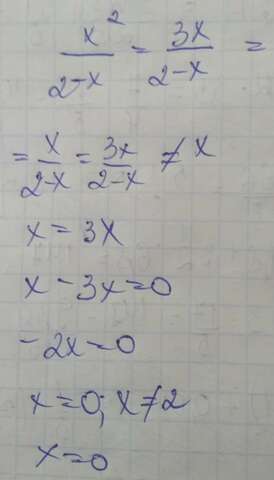 x²/2-x = 3x/2-x =
= x/2-x = 3x/2-x ≠ x
x = 3x
x - 3x = 0
- 2x = 0
x = 0; x ≠ 2
x = 0